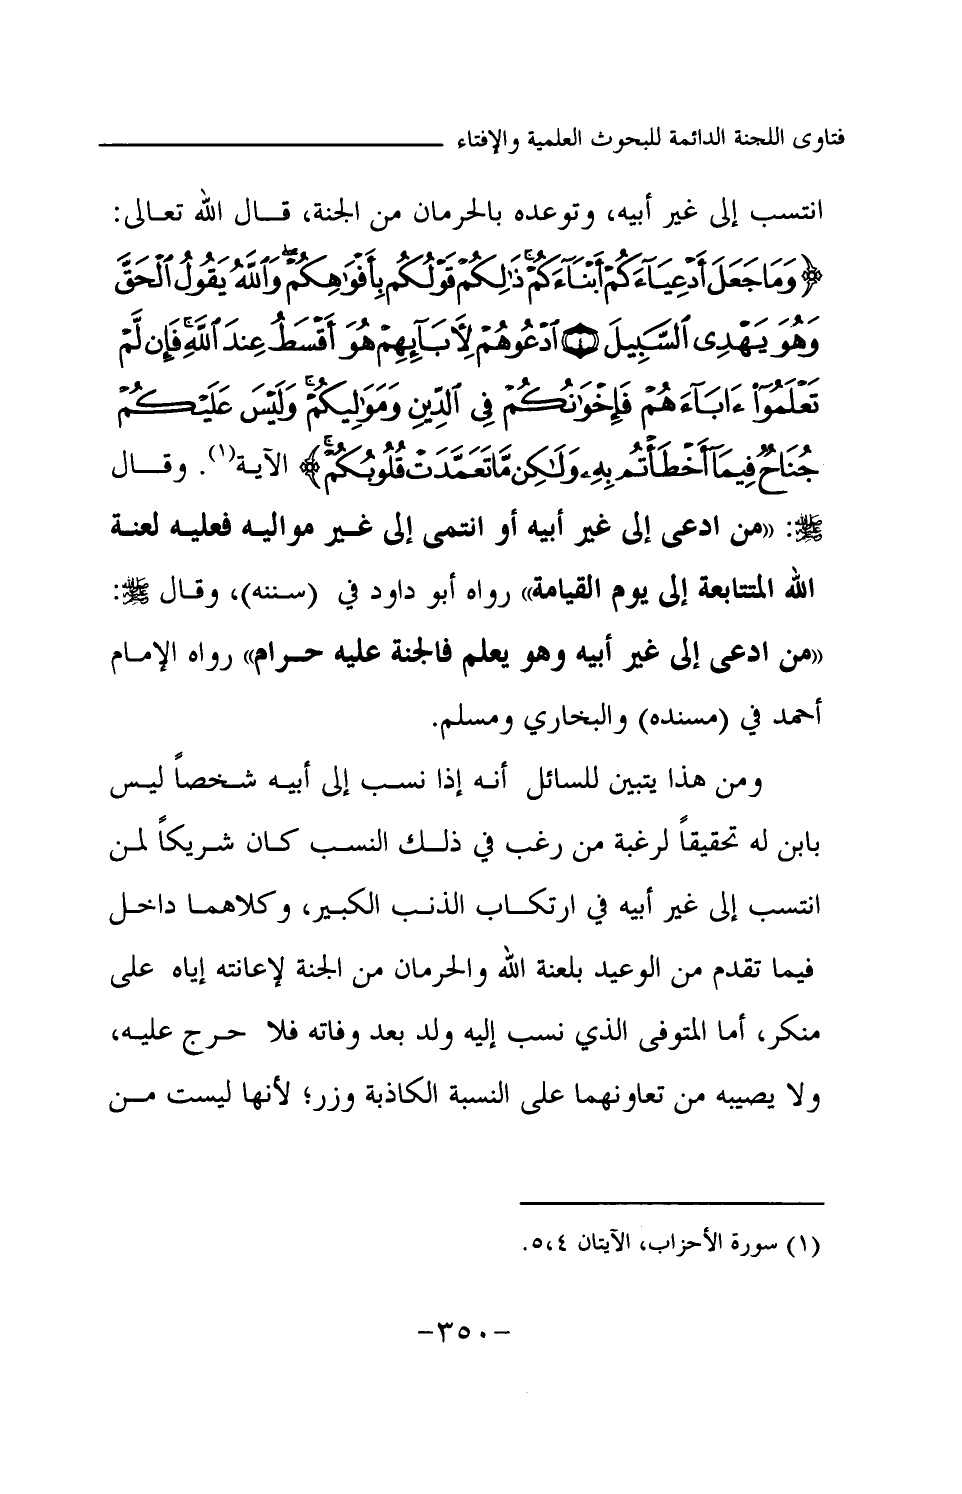 فتاوى اللجنة الدائمة للبحوث العلمية والإفتاء
انتسب إلى غير أبيه، وتوعده بالحرمان من الجنة، قال الله تعالى:
﴿وَمَا جَعَلَ أَدْعِيَآءَكُمْ أَبْنَآءَكُمْ ۚ ذَٰلِكُمْ قَوْلُكُم بِأَفْوَٰهِكُمْ ۖ وَٱللَّهُ يَقُولُ ٱلْحَقَّ
وَهُوَ يَهْدِى ٱلسَّبِيلَ ۝٤ ٱدْعُوهُمْ لِأَبَآئِهِمْ هُوَ أَقْسَطُ عِندَ ٱللَّهِ ۚ فَإِن لَّمْ
تَعْلَمُوٓا۟ ءَابَآءَهُمْ فَإِخْوَٰنُكُمْ فِى ٱلدِّينِ وَمَوَٰلِيكُمْ ۚ وَلَيْسَ عَلَيْكُمْ
جُنَاحٌ فِيمَآ أَخْطَأْتُم بِهِۦ وَلَٰكِن مَّا تَعَمَّدَتْ قُلُوبُكُمْ ۚ﴾ الآية(١). وقال
ﷺ: «من ادعى إلى غير أبيه أو انتمى إلى غير مواليه فعليه لعنة
الله المتتابعة إلى يوم القيامة» رواه أبو داود في (سننه)، وقال ﷺ:
«من ادعى إلى غير أبيه وهو يعلم فالجنة عليه حرام» رواه الإمام
أحمد في (مسنده) والبخاري ومسلم.
ومن هذا يتبين للسائل أنه إذا نسب إلى أبيه شخصاً ليس
بابن له تحقيقاً لرغبة من رغب في ذلك النسب كان شريكاً لمن
انتسب إلى غير أبيه في ارتكاب الذنب الكبير، وكلاهما داخل
فيما تقدم من الوعيد بلعنة الله والحرمان من الجنة لإعانته إياه على
منكر، أما المتوفى الذي نسب إليه ولد بعد وفاته فلا حرج عليه،
ولا يصيبه من تعاونهما على النسبة الكاذبة وزر؛ لأنها ليست من
(١) سورة الأحزاب، الآيتان ٤،٥.
-٣٥٠-